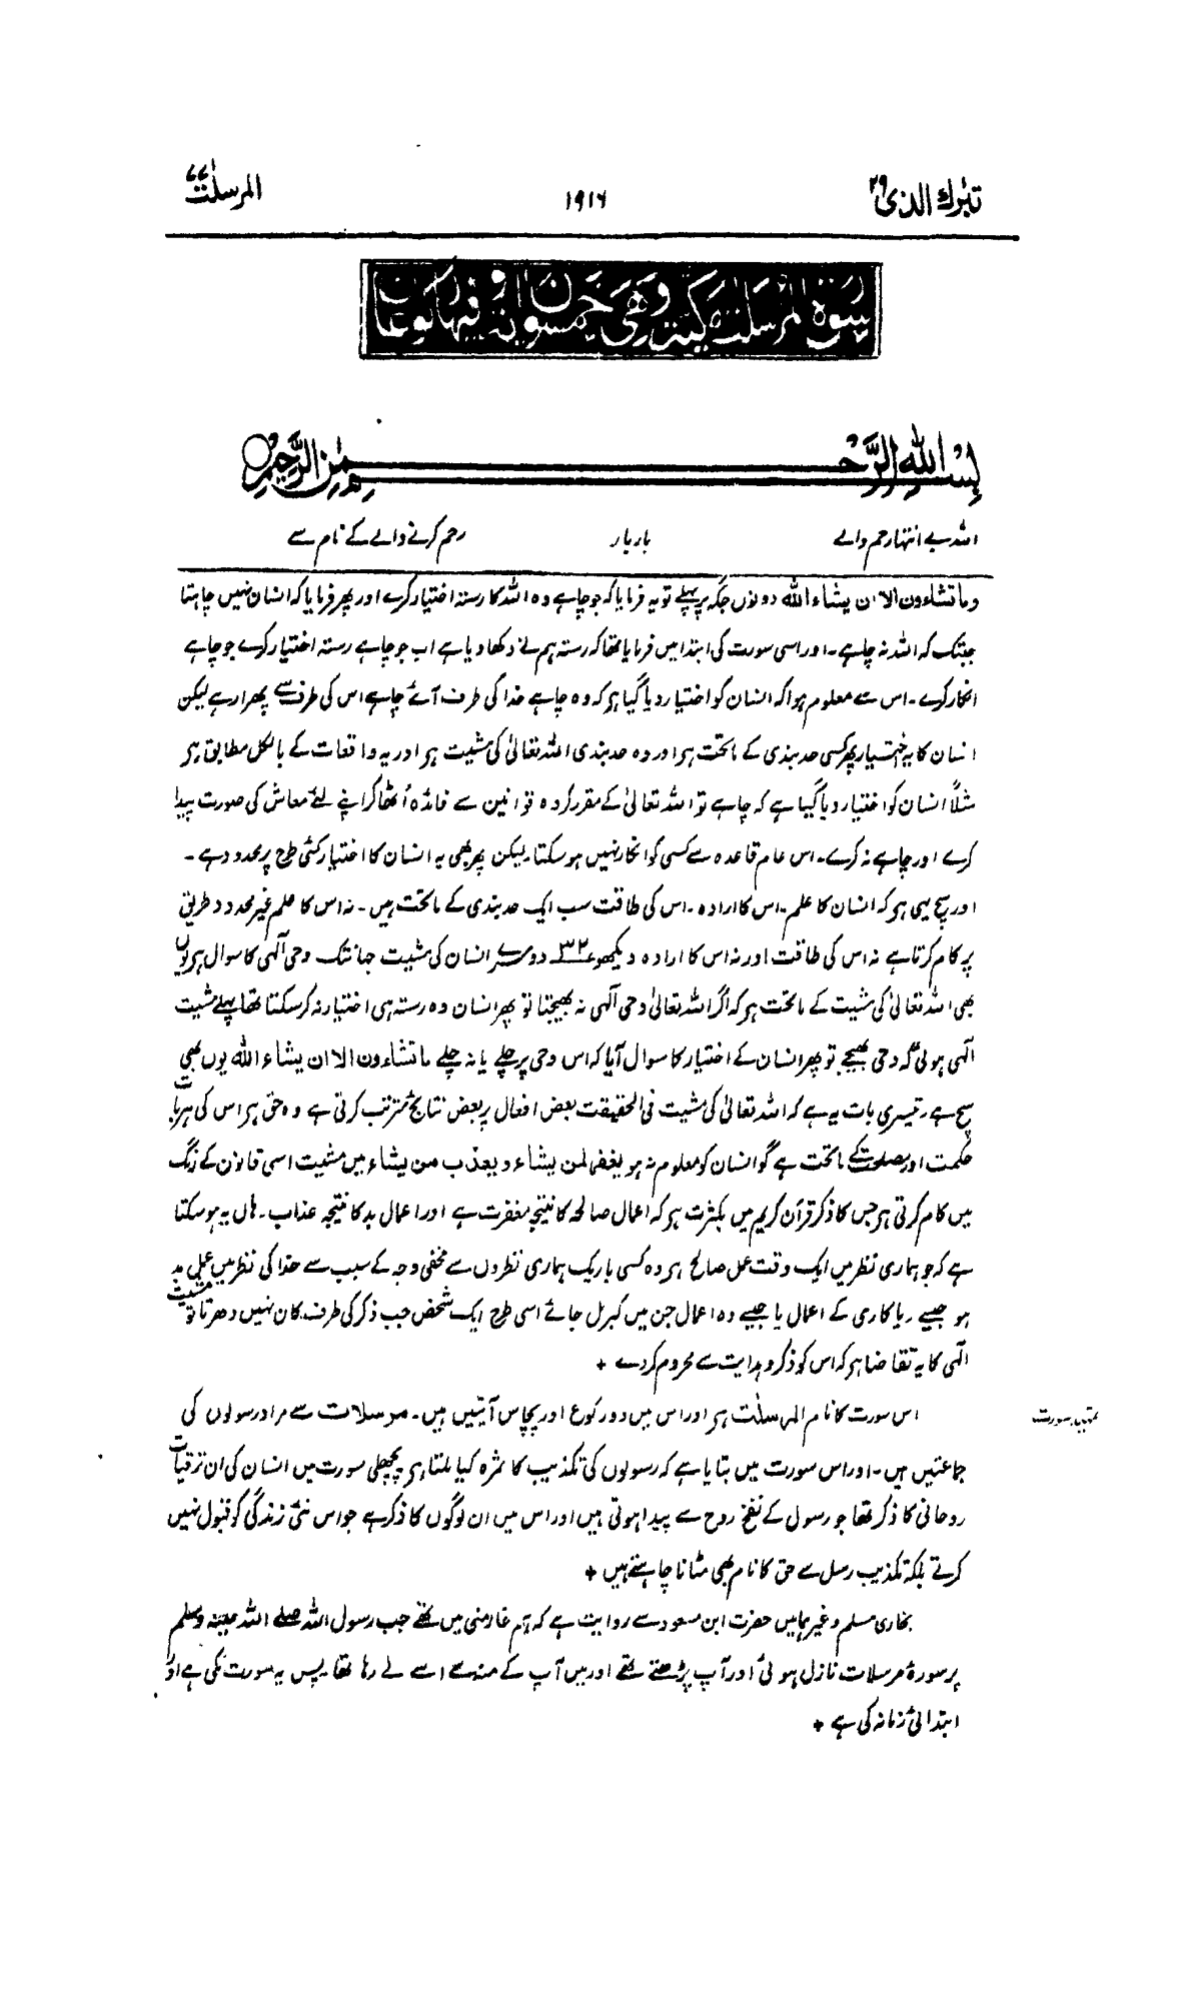 تبٰرك الذى ٢٩
١٩١٦
المرسلٰت ٧٧
سورة المرسلٰت مكية وهى خمسون اٰية وفيها ركوعان
بسم الله الرحمٰن الرحيم
اللہ بے انتہا رحم والے بار بار رحم کرنے والے کے نام سے
وما تشاءون الا ان یشاء اللہ دونوں جگہ پر پہلے تو یہ فرمایا کہ جو چاہے وہ اللہ کا رستہ اختیار کرے اور پھر فرمایا کہ انسان نہیں چاہتا
جبتک کہ اللہ نہ چاہے۔ اور اسی سورت کی ابتدا میں فرمایا تھا کہ رستہ ہم نے دکھا دیا ہے اب جو چاہے رستہ اختیار کرے جو چاہے
انکار کرے۔ اس سے معلوم ہوا کہ انسان کو اختیار دیا گیا ہو کہ وہ چاہے خدا کی طرف آئے چاہے اس کی طرف سے پھرا رہے لیکن
انسان کا یہ اختیار پھر کسی حد بندی کے ماتحت ہو اور وہ حد بندی اللہ تعالیٰ کی مشیت ہو اور یہ واقعات کے بالکل مطابق ہو
مثلاً انسان کو اختیار دیا گیا ہے کہ چاہے تو اللہ تعالیٰ کے مقرر کردہ قوانین سے فائدہ اُٹھا کر اپنے لئے معاش کی صورت پیدا
کرے اور چاہے نہ کرے۔ اس عام قاعدہ سے کسی کو انکار نہیں ہو سکتا لیکن پھر بھی یہ انسان کا اختیار کئی طرح پر محدود ہے۔
اور سچ یہی ہو کہ انسان کا علم۔ اس کا ارادہ۔ اس کی طاقت سب ایک حد بندی کے ماتحت ہیں۔ نہ اس کا علم غیر محدود طریق
پر کام کرتا ہے نہ اس کی طاقت اور نہ اس کا ارادہ دیکھو ۳۲ دوسرے انسان کی مشیت جہانتک وحی الٰہی کا سوال ہو یوں
بھی اللہ تعالیٰ کی مشیت کے ماتحت ہو کہ اگر اللہ تعالیٰ وحی الٰہی نہ بھیجتا تو پھر انسان وہ رستہ ہی اختیار نہ کر سکتا تھا پہلے مشیت
الٰہی ہوئی کہ وحی بھیجے تو پھر انسان کے اختیار کا سوال آیا کہ اس وحی پر چلے یا نہ چلے ما تشاءون الا ان یشاء اللہ یوں بھی
سچ ہے۔ تیسری بات یہ ہے کہ اللہ تعالیٰ کی مشیت فی الحقیقت بعض افعال پر بعض نتائج مترتب کرتی ہے وہ حق ہو اس کی ہر بات
حکمت اور مصلحت کے ماتحت ہے گو انسان کو معلوم نہ ہو یغفر لمن یشاء و یعذب من یشاء میں مشیت اسی قانون کے رنگ
میں کام کرتی ہو جس کا ذکر قرآن کریم میں بکثرت ہو کہ اعمال صالحہ کا نتیجہ مغفرت ہے اور اعمال بد کا نتیجہ عذاب۔ ہاں یہ ہو سکتا
ہے کہ جو ہماری نظر میں ایک وقت عمل صالح ہو وہ کسی باریک ہماری نظروں سے مخفی وجہ کے سبب سے خدا کی نظر میں عمل بد
ہو جیسے ریاکاری کے اعمال یا جیسے وہ اعمال جن میں کبر مل جائے اسی طرح ایک شخص جب ذکر کی طرف کان نہیں دھرتا تو مشیت
الٰہی کا یہ تقاضا ہو کہ اس کو ذکر و ہدایت سے محروم کردے +
تمہید سورت
اس سورت کا نام المرسلٰت ہو اور اس میں دو رکوع اور پچاس آیتیں ہیں۔ مرسلات سے مراد رسولوں کی
جماعتیں ہیں۔ اور اس سورت میں بتایا ہے کہ رسولوں کی تکذیب کا ثمرہ کیا ملتا ہو پچھلی سورت میں انسان کی ان ترقیات
روحانی کا ذکر تھا جو رسول کے نفخ روح سے پیدا ہوتی ہیں اور اس میں ان لوگوں کا ذکر ہے جو اس نئی زندگی کو قبول نہیں
کرتے بلکہ تکذیب رسل سے حق کا نام بھی مٹانا چاہتے ہیں +
بخاری مسلم وغیرہما میں حضرت ابن مسعود سے روایت ہے کہ ہم غار منیٰ میں تھے جب رسول اللہ صلے اللہ علیہ وسلم
پر سورۂ مرسلات نازل ہوئی اور آپ پڑھتے تھے اور میں آپ کے منہ سے اسے لے رہا تھا پس یہ سورت مکی ہے اور
ابتدائی زمانہ کی ہے +